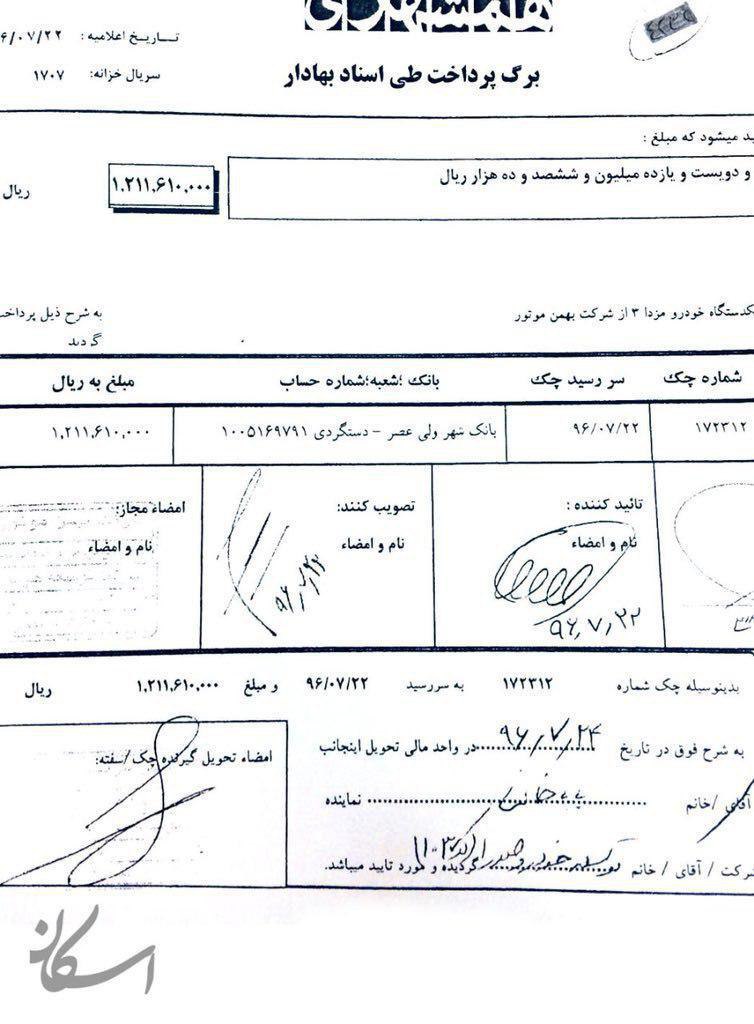 همشهری
تـــاریـخ اعلامیه : ۶/۰۷/۲۲
برگ پرداخت طی اسناد بهادار
سریال خزانه: ۱۷۰۷
ید میشود که مبلغ :
و دویست و یازده میلیون و ششصد و ده هزار ریال
۱.۲۱۱,۶۱۰,۰۰۰ ریال
کدستگاه خودرو مزدا ۳ از شرکت بهمن موتور
به شرح ذیل پرداخت
گردید
شماره چک سر رسید چک بانک ؛شعبه؛شماره حساب مبلغ به ریال
۱۷۲۳۱۲ ۹۶/۰۷/۲۲ بانک شهر ولی عصر – دستگردی ۱۰۰۵۱۶۹۷۹۱ ۱,۲۱۱,۶۱۰,۰۰۰
تائید کننده : تصویب کنند: امضاء مجاز:
نام و امضاء نام و امضاء نام و امضاء
۹۶,۷,۲۲ ۹۶/۷/۲۲
بدینوسیله چک شماره ۱۷۲۳۱۲ به سررسید ۹۶/۰۷/۲۲ و مبلغ ۱,۲۱۱,۶۱۰,۰۰۰ ریال
به شرح فوق در تاریخ ۹۶,۷,۲۴ در واحد مالی تحویل اینجانب
امضاء تحویل گیرنده چک /سفته:
آقای /خانم نماینده
شرکت / آقای / خانم گردیده و مورد تایید میباشد.
اسکان